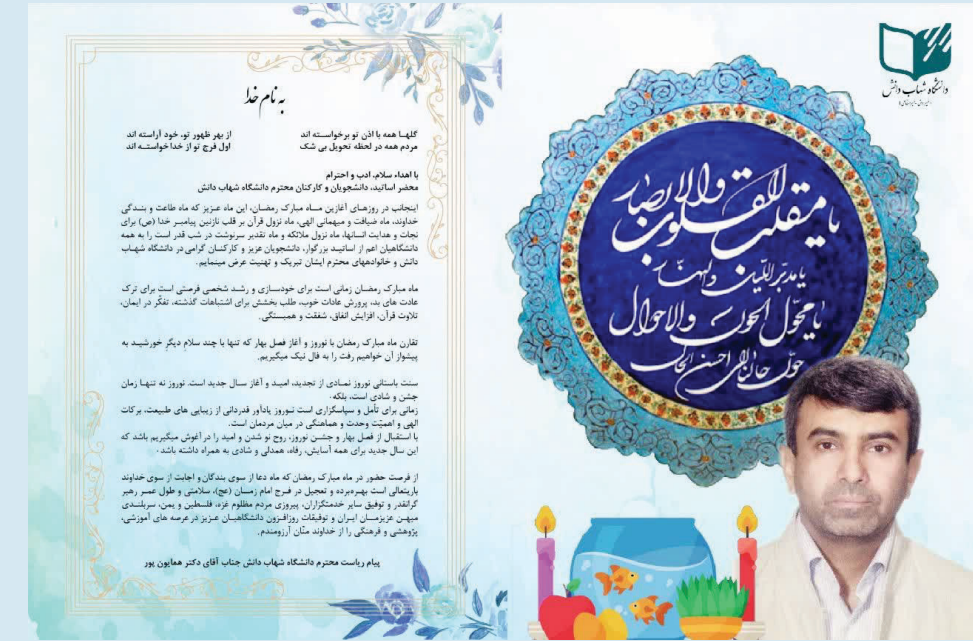 به نام خدا
گلهـا همه با اذن تو برخواسـته اند از بهر ظهور تو، خود آراسته اند
مردم همه در لحظه تحویل بی شک اول فرج تو از خدا خواستـه اند
با اهداء سلام، ادب و احترام
محضر اساتید، دانشجویان و کارکنان محترم دانشگاه شهاب دانش
اینجانب در روزهـای آغازین مـاه مبارک رمضـان، این ماه عـزیز که ماه طاعت و بنـدگی
خداوند، ماه ضیافت و میهمانی الهی، ماه نزول قرآن بر قلب نازنین پیامبـر خدا (ص) برای
نجات و هدایت انسانها، ماه نزول ملائکه و ماه تقدیر سرنوشت در شب قدر است را به همه
دانشگاهیان اعم از اساتیـد بزرگوار، دانشجویان عزیز و کارکنـان گرامی در دانشگاه شهـاب
دانش و خانوادههای محترم ایشان تبریک و تهنیت عرض مینمایم.
ماه مبارک رمضـان زمانی است برای خودسـازی و رشـد شخصی فرصتی است برای ترک
عادت های بد، پرورش عادات خوب، طلب بخشش برای اشتباهات گذشته، تفکّر در ایمان،
تلاوت قرآن، افزایش انفاق، شفقت و همبستگی.
تقارن ماه مبارک رمضان با نوروز و آغاز فصل بهار که تنها با چند سلام دیگرِ خورشیـد به
پیشواز آن خواهیم رفت را به فال نیک میگیریم.
سنت باستانی نوروز نمـادی از تجدید، امیـد و آغاز سـال جدید است. نوروز نه تنهـا زمان
جشن و شادی است، بلکه۰
زمانی برای تأمل و سپاسگزاری است نـوروز یادآور قدردانی از زیبایی های طبیعت، برکات
الهی و اهمیّت وحدت و هماهنگی در میان مردمان است.
با استقبال از فصل بهار و جشـن نوروز، روح نو شدن و امید را در آغوش میگیریم باشد که
این سال جدید برای همه آسایش، رفاه، همدلی و شادی به همراه داشته باشد۰
از فرصت حضور در ماه مبارک رمضان که ماه دعا از سوی بندگان و اجابت از سوی خداوند
باریتعالی است بهـره‌برده و تعجیل در فـرج امام زمـان (عج)، سلامتی و طول عمـر رهبر
گرانقدر و توفیق سایر خدمتگزاران، پیروزی مردم مظلوم غزه، فلسطین و یمن، سربلنـدی
میهـن عزیزمـان ایـران و توفیقات روزافـزون دانشگاهیـان عـزیز در عرصه های آموزشی،
پژوهشی و فرهنگی را از خداوند منّان آرزومندم.
پیام ریاست محترم دانشگاه شهاب دانش جناب آقای دکتر همایون پور
دانشگاه شهاب دانش
یا مقلب القلوب والابصار
یا مدبّر اللیل والنهار
یا محوّل الحول والاحوال
حوّل حالنا الی احسن الحال